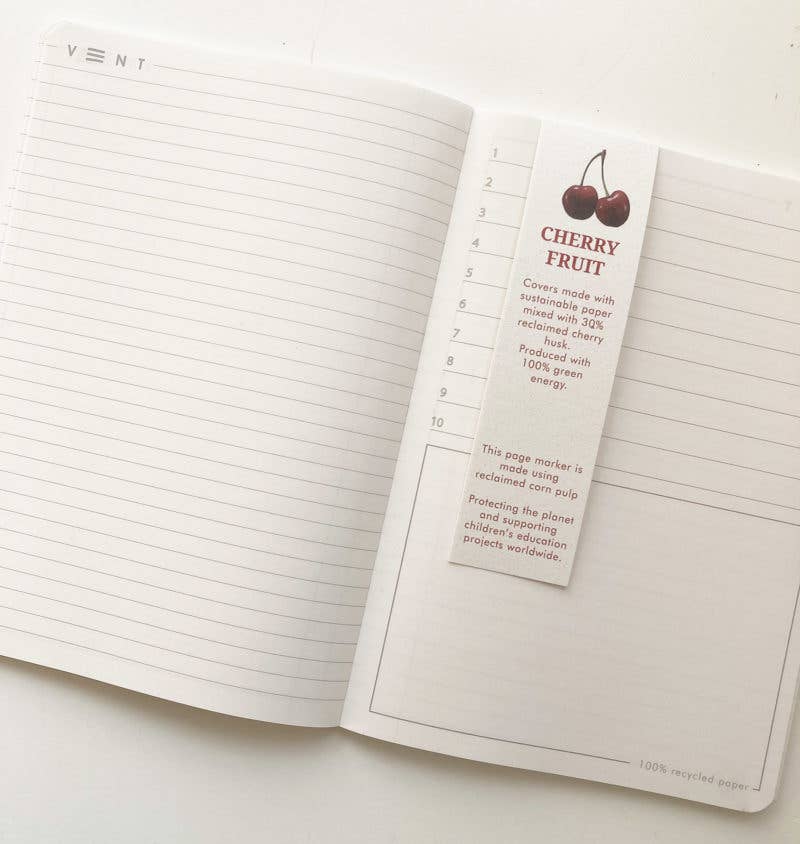 V E N T
1
2
3
4
5
6
7
8
9
10
CHERRY
FRUIT
Covers made with
sustainable paper
mixed with 30%
reclaimed cherry
husk.
Produced with
100% green
energy.
This page marker is
made using
reclaimed corn pulp
Protecting the planet
and supporting
children's education
projects worldwide.
100% recycled paper